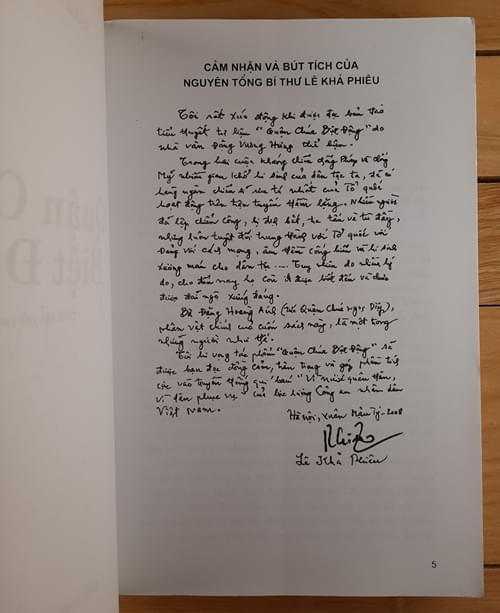 CẢM NHẬN VÀ BÚT TÍCH CỦA
NGUYÊN TỔNG BÍ THƯ LÊ KHẢ PHIÊU
Tôi rất xúc động khi được đọc bản thảo
tiểu thuyết tư liệu "Quận Chúa Biệt Động" do
nhà văn Đặng Vương Hưng thể hiện.
Trong hai cuộc kháng chiến chống Pháp và chống
Mỹ nhiều gian khổ hi sinh của dân tộc ta, đã có
hàng ngàn chiến sĩ ưu tú nhất của Tổ quốc
hoạt động trên trận tuyến thầm lặng. Nhiều người
đã lập chiến công, bị địch bắt, tra tấn và tù đày,
nhưng luôn tuyệt đối trung thành với Tổ quốc với
Đảng với cách mạng. âm thầm cống hiến và hi sinh
xương máu cho dân tộc .... Tuy nhiên do nhiều lý
do, cho đến nay họ còn ít được biết đến và chưa
được đãi ngộ xứng đáng.
Bà Đặng Hoàng Ánh (tức Quận Chúa Ngọc Diệp),
nhân vật chính của cuốn sách này, là một trong
những người như thế.
Tôi hi vọng tác phẩm "Quận Chúa Biệt Động" sẽ
được bạn đọc đồng cảm, trân trọng và góp phần tích
cực vào truyền thống quí báu "Vì nước quên thân,
vì dân phục vụ" của lực lượng Công an nhân dân
Việt Nam.
Hà Nội, Xuân Mậu Tý - 2008
Lê Khả Phiêu
5